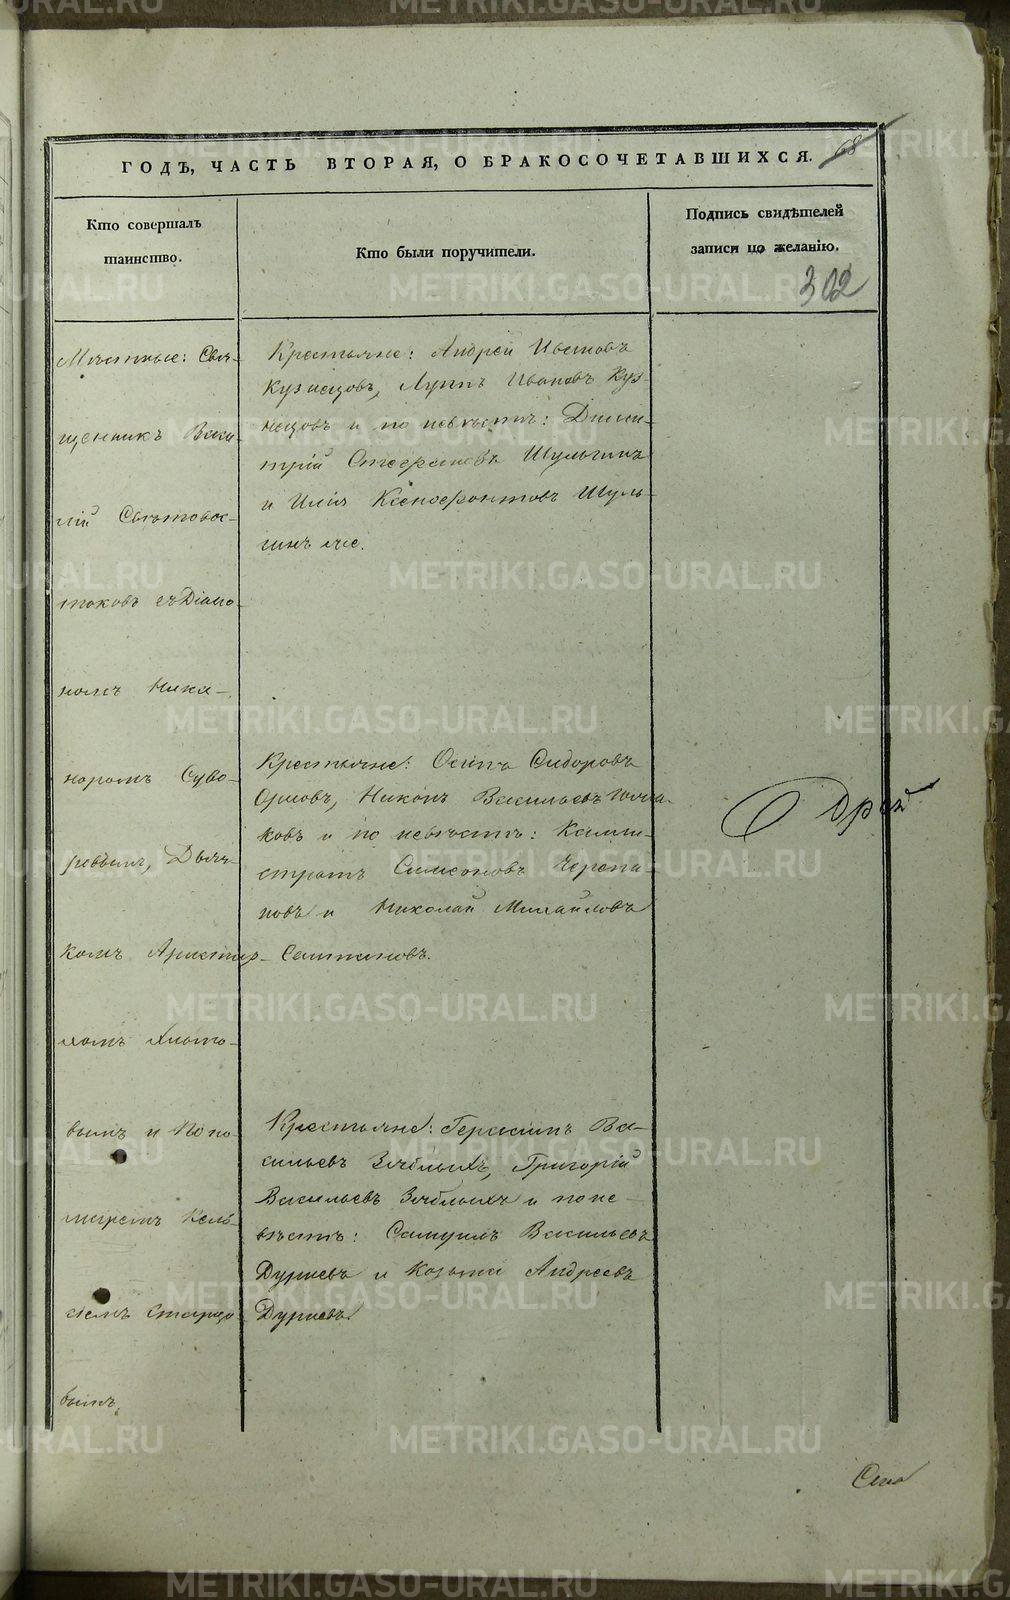 ГОДЪ, ЧАСТЬ ВТОРАЯ, О БРАКОСОЧЕТАВШИХСЯ.
68
Кто совершалъ
таинство.
Кто были поручители.
Подпись свидѣтелей
записи по желанію.
302
Мѣстные: Свя-
щенникъ Васи-
лій Свѣтовос-
токовъ съ Діако-
номъ Ника-
норомъ Суво-
ровымъ, Дьяч-
комъ Аристар-
хомъ Хлопо-
вымъ и Поно-
маремъ
Старцо-
вымъ.
Крестьяне: Андрей Ивановъ
Кузнецовъ, Луппъ Ивановъ Куз-
нецовъ и по невѣстѣ: Дими-
трій Стефановъ Шульгинъ
и Илія Ксенофонтовъ Шуль-
гинъ же.
Крестьяне: Осипъ Сидоровъ
Орловъ, Никонъ Васильевъ
ковъ и по невѣстѣ: Калли-
стратъ Симеоновъ Черепа-
новъ и Николай Михайловъ
Салтановъ.
Крестьяне: Герасимъ Ва-
сильевъ Григорій
Васильевъ и по не-
вѣстѣ: Самуилъ Васильевъ
Дурневъ и Козьма Андреевъ
Дурневъ
METRIKI.GASO-URAL.RU